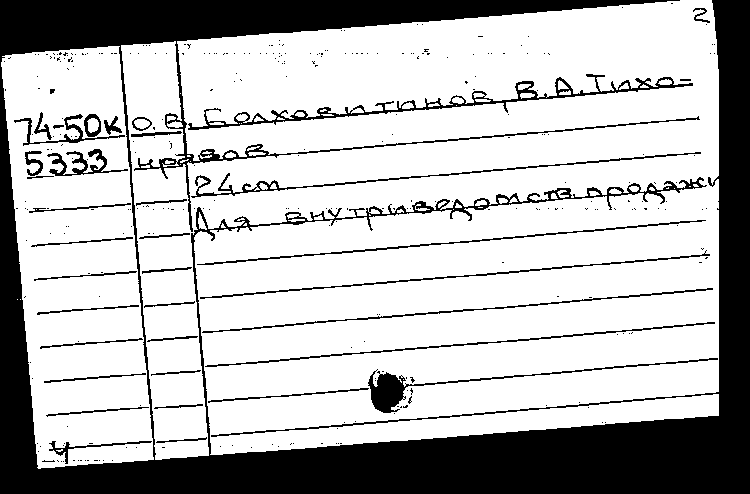 2
74-50к О.В. Болховитинов, В.А. Тихо=
5333 нравов.
24 cm
Для внутриведомств продажи
4